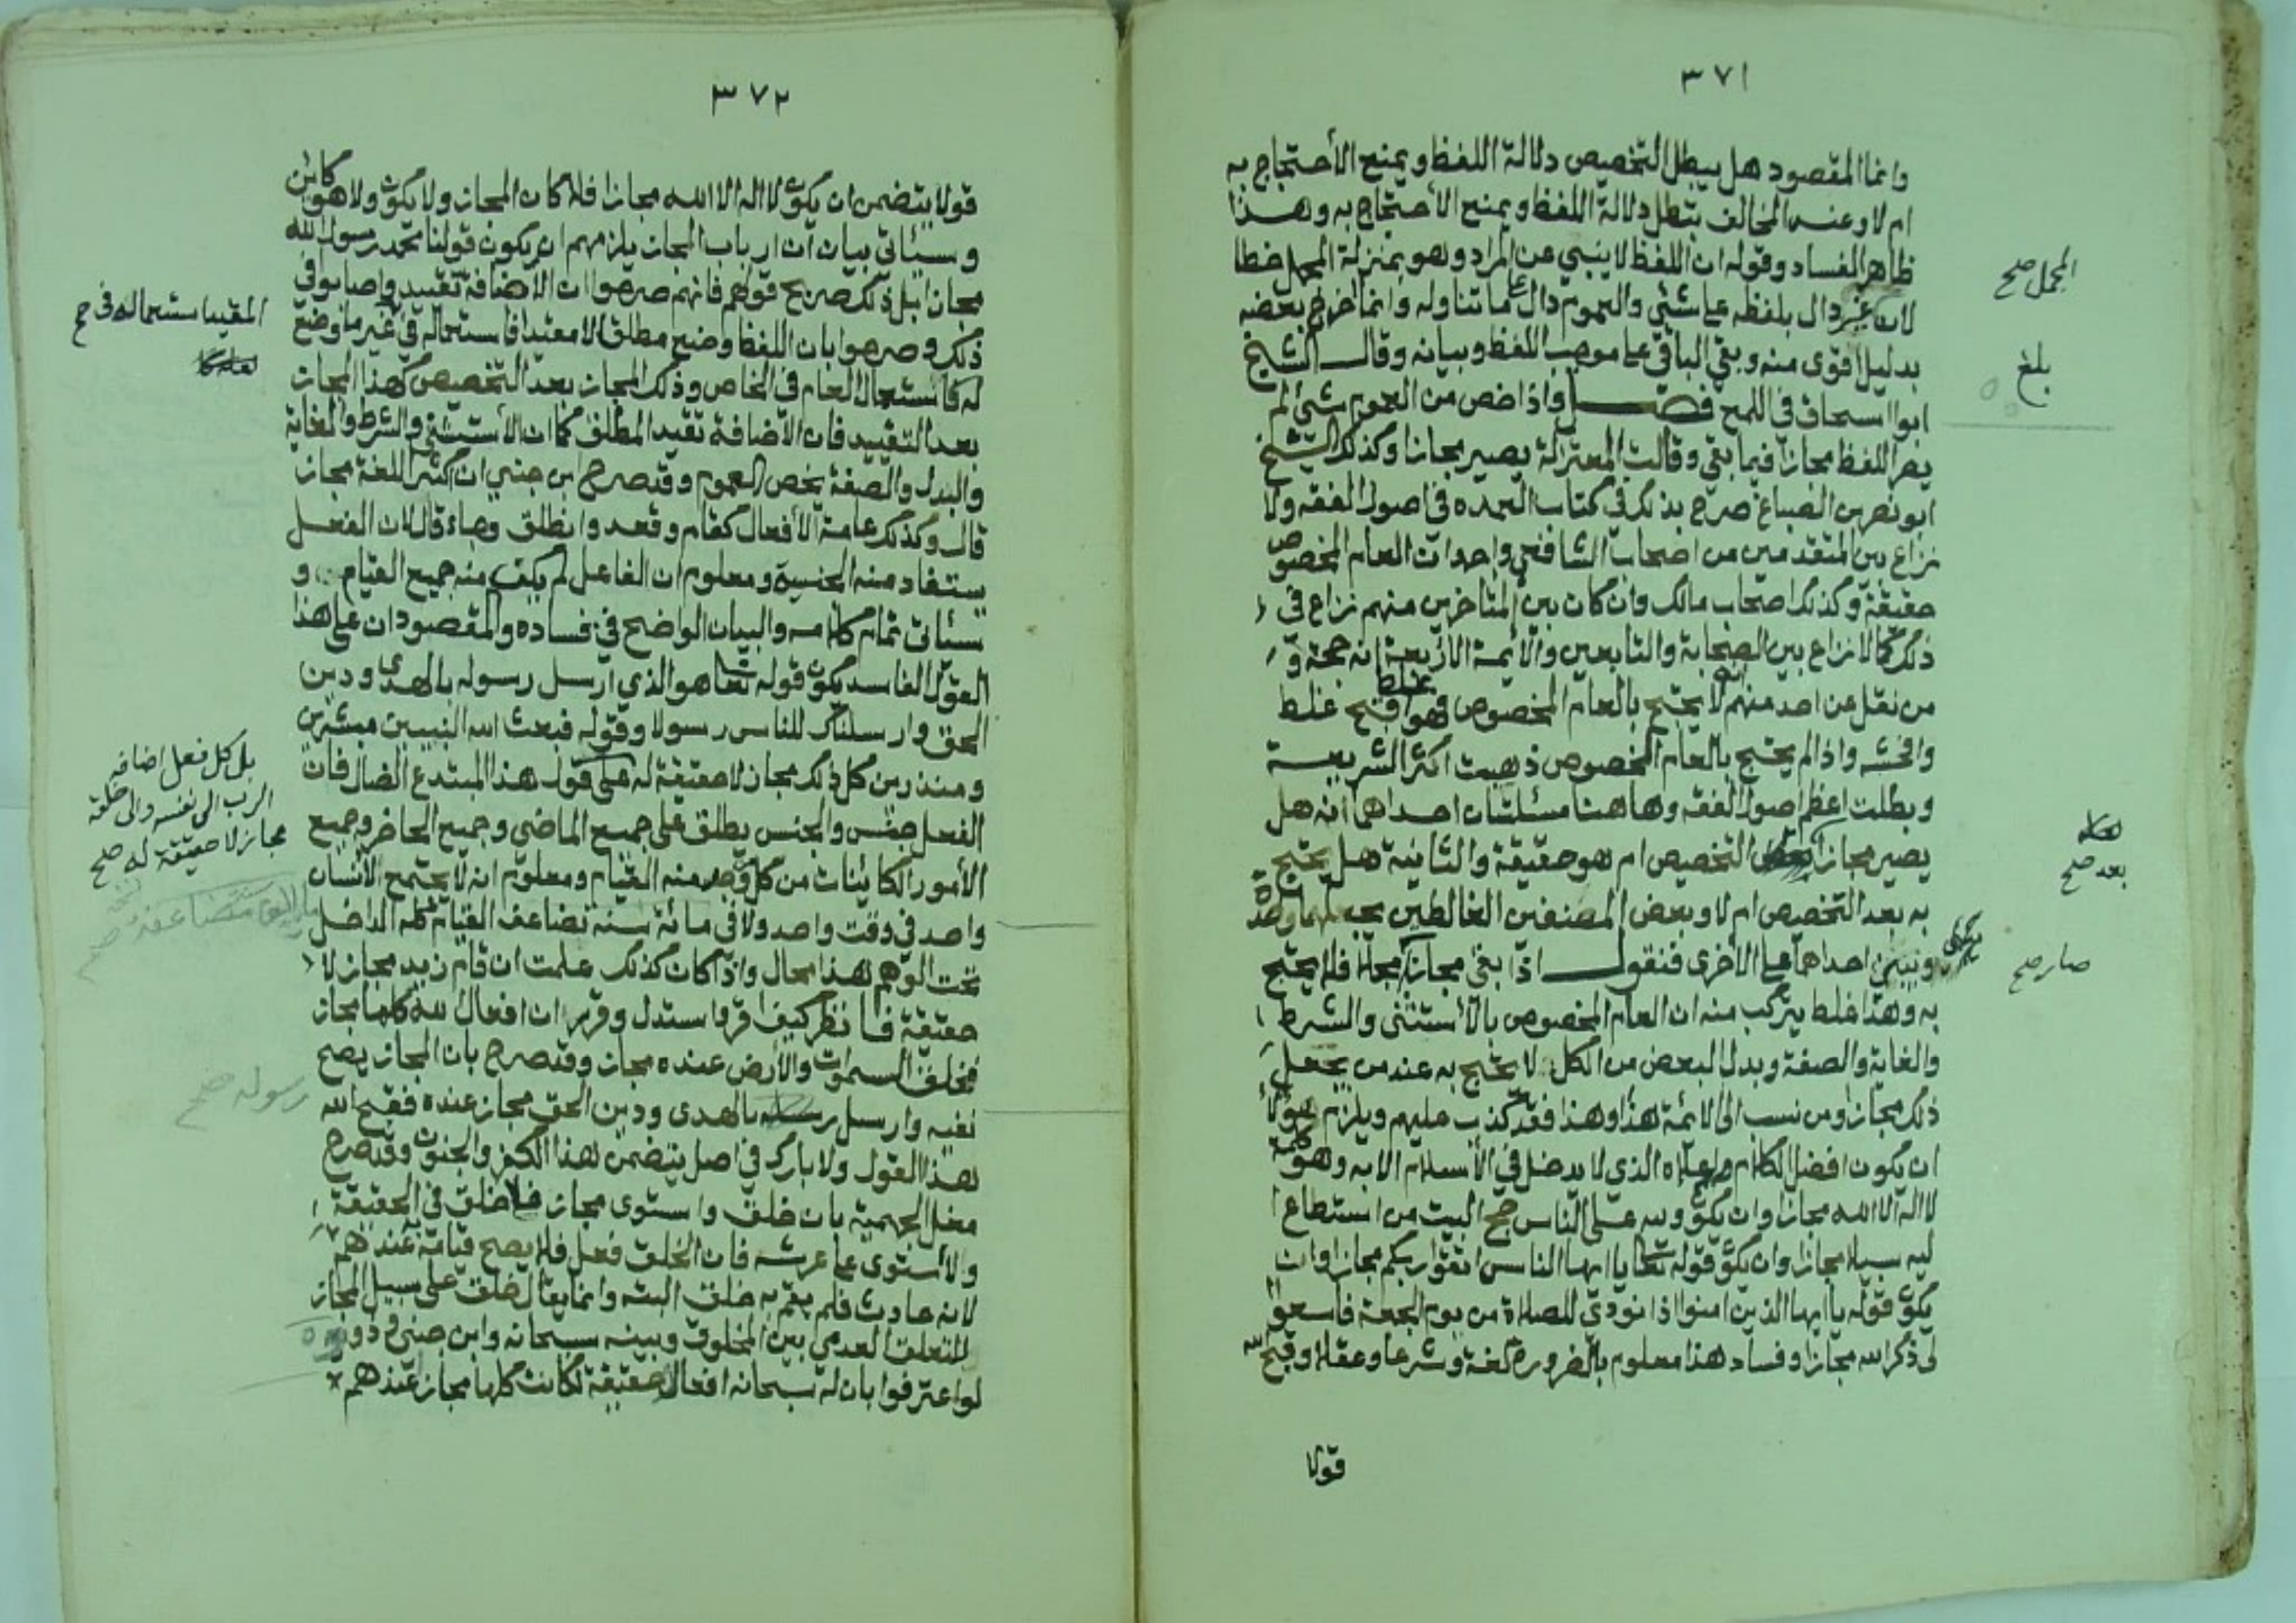 ٣٧١
وانما المقصود هل يبطل التخصيص دلالة اللفظ ويمنع الأحتجاج به
ام لا وعند المخالف يتطل دلالة اللفظ ويمنع الأحتجاج به وهذا
ظاهر الفساد وقوله ان اللفظ لا ينبي عن المراد وهو بمنزلة المجمل خطا
لان غير دال بلفظه على شئي والعموم دال على ما تناوله وانما اخرج بعضه
بدليل اقوى منه وبقي الباقي على موجب اللفظ وبيانه وقال الشيخ
ابوا اسحاق في اللمع فصل واذا خص من العموم شئ لم
يصر اللفظ مجازا فيما بقي وقالت المعتزلة يصير مجازا وكذلك الشيخ
ابو نصر بن الصباغ صرح بذلك في كتاب العمده في اصول الفقه ولا
نزاع بين المتقدمين من اصحاب الشافعي واحد ان العام المخصوص
حقيقة وكذلك اصحاب مالك وان كان بين المتاخرين منهم نزاع في
ذلك كما لا نزاع بين الصحابة والتابعين والأئمة الاربعة انه حجة و
من نقل عن احد منهم انه لا يحتج بالعام المخصوص فهو غلط اقبح غلط
وافحشه واذا لم يحتج بالعام المخصوص ذهبت اكثر الشريعة
وبطلت اعظم اصول الفقه وهاهنا مسئلتان احداهما انه هل
يصير مجازا التخصيص ام هو حقيقة والثانية هل يحتج
به بعد التخصيص ام لا وبعض المصنفين الغالطين يجعلهما واحدة
ويبني احداهما على الأخرى فنقول اذا بقي مجازا مجملا فلا يحتج
به وهذا غلط يتركب منه ان العام المخصوص بالأستثنى والشرط
والغاية والصفة وبدل البعض من الكل لا يحتج به عند من يجعل
ذلك مجازا ومن نسب الى الائمة هذا وهذا فقد كذب عليهم ويلزم هؤلأ
ان يكون افضل الكلام واعلاه الذي لا يدخل في الأسلام الا به وهو كلمة
لا اله الا الله مجازا وان يكون ولله على الناس حج البيت من استطاع ا
ليه سبيلا مجازا وان يكون قوله تعا يا ايها الناس اتقوا ربكم مجازا وان
يكون قوله يا ايها الذين امنوا اذا نودي للصلاة من يوم الجمعة فاسعوا
لى ذكر الله مجازا وفساد هذا معلوم بالضرورة لغة وشرعا وعقلا وقبح الله
قولا
المجمل صح
بلغ
بعد صح
صار صح
٣٧٢
قولا يتضمن ان يكون لا اله الا الله مجازا فلا كان المجاز ولا يكون ولا هو كائن
وسيأتي بيان ان ارباب المجاز يلزمهم ان يكون قولنا محمد رسول الله
مجازا بل ذلك صريح قولهم فانهم صرحوا ان الأضافة تقييد واصابو في
ذلك وصرحوا بان اللفظ وضع مطلقا لا مقيدا فاستعماله في غير ما وضع
له كاستعمال العام في الخاص وذلك المجاز بعد التخصيص كهذا المجاز
بعد التقييد فان الأضافة تقيد المطلق كما ان الأستثني والشرط والغاية
والبدل والصفة يخص العموم وقد صرح ابن جني ان اكثر اللغة مجاز
قال وكذلك عامة الأفعال كقام وقعد وانطلق وجاء قال لان الفعل
يستفاد منه الجنسية ومعلوم ان الفاعل لم يكن منه جميع القيام و
سئاتي تمام كلامه والبيان الواضح في فساده والمقصود ان على هذا
القول الفاسد يكون قوله تعا هو الذي ارسل رسوله بالهدى ودين
الحق وارسلناك للناس رسولا وقوله فبعث الله النبيين مبشرين
ومنذرين كل ذلك مجاز لا حقيقة له على قول هذا المبتدع الضال فان
الفعل جنس والجنس يطلق على جميع الماضي وجميع الحاضر وجميع
الأمور الكائنات من كل وجد منه القيام ومعلوم انه لا يجتمع لأنسان
واحد في وقت واحد ولا في مائة سنة تضاعف القيام كله الداخل
تحت الوهم هذا محال واذا كان كذلك علمت ان قام زيد مجاز لا
حقيقة فانظر كيف اقر واستدل وقرر ان افعال الله كلها مجاز
فخلق السموات والأرض عنده مجاز وقد صرح بان المجاز يصح
نفيه وارسل بالهدى ودين الحق مجاز عنده فقبح الله
هذا القول ولا بارك في اصل يتضمن هذا الكفر والجنون وقد صرح
معل الجهمية بان خلق واستوى مجاز فلا خلق في الحقيقة
ولا أستوى على عرشه فان الخلق فعل فلا يصح قيامه عندهم
لانه حادث فلم يقم به خلق البته وانما يقال خلق على سبيل المجاز
للتعلق العدمي بين المخلوق وبينه سبحانه وابن جني وذووه
لو اعترفوا بان له سبحانه افعالا حقيقة لكانت كلها مجاز عندهم
المقيد استعماله في صح
بل كل فعل اضافه
الرب الى نفسه والى خلقه
مجاز لا حقيقة له صح
رسوله صح